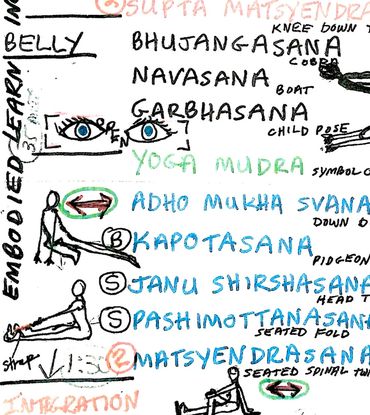 ② SUPTA MATSYENDRA
KNEE DOWN T
BELLY
BHUJANGASANA
COBRA
NAVASANA
BOAT
GARBHASANA
CHILD POSE
YOGA MUDRA
SYMBOL O
EMBODIED LEARN
ADHO MUKHA SVANA
DOWN D
Ⓑ KAPOTASANA
PIDGEON
Ⓢ JANU SHIRSHASANA
HEAD T
Ⓢ PASHIMOTTANASANA
SEATED FOLD
strap
1:30
② MATSYENDRASANA
SEATED SPINAL TWI
INTEGRATION